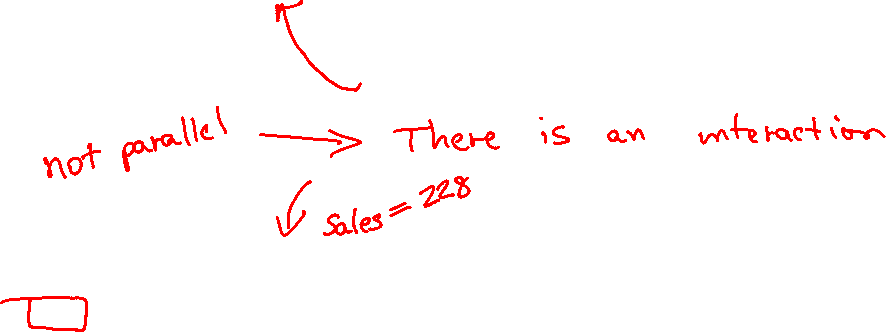 not parallel → There is an interaction
Sales = 228